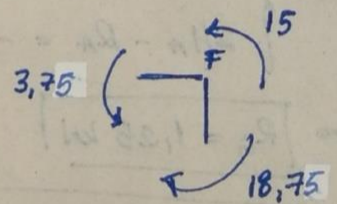 15
F
3,75
18,75